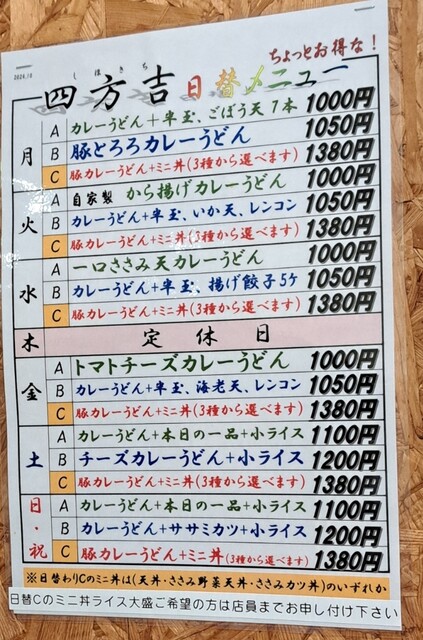 ちょっとお得な!
2024.10
しほきち
四方吉 日替メニュー
月 A カレーうどん+半玉、ごぼう天7本 1000円
B 豚とろろカレーうどん 1050円
C 豚カレーうどん+ミニ丼(3種から選べます) 1380円
火 A 自家製 から揚げカレーうどん 1000円
B カレーうどん+半玉、いか天、レンコン 1050円
C 豚カレーうどん+ミニ丼(3種から選べます) 1380円
水 A 一口ささみ天カレーうどん 1000円
B カレーうどん+半玉、揚げ餃子5ケ 1050円
C 豚カレーうどん+ミニ丼(3種から選べます) 1380円
木 定休日
金 A トマトチーズカレーうどん 1000円
B カレーうどん+半玉、海老天、レンコン 1050円
C 豚カレーうどん+ミニ丼(3種から選べます) 1380円
土 A カレーうどん+本日の一品+小ライス 1100円
B チーズカレーうどん+小ライス 1200円
C 豚カレーうどん+ミニ丼(3種から選べます) 1380円
日・祝 A カレーうどん+本日の一品+小ライス 1100円
B カレーうどん+ササミカツ+小ライス 1200円
C 豚カレーうどん+ミニ丼(3種から選べます) 1380円
※日替わりCのミニ丼は(天丼・ささみ野菜天丼・ささみカツ丼)のいずれか
日替Cのミニ丼ライス大盛ご希望の方は店員までお申し付け下さい